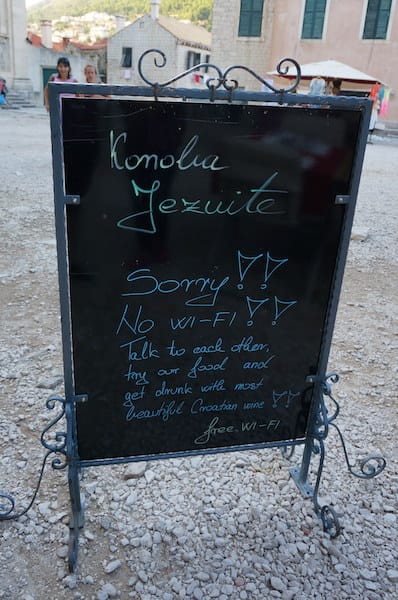 Konoba
Jezuite
Sorry!!
No WI-FI!!
Talk to each other,
try our food and
get drunk with most
beautiful Croatian wine!!
free WI-FI